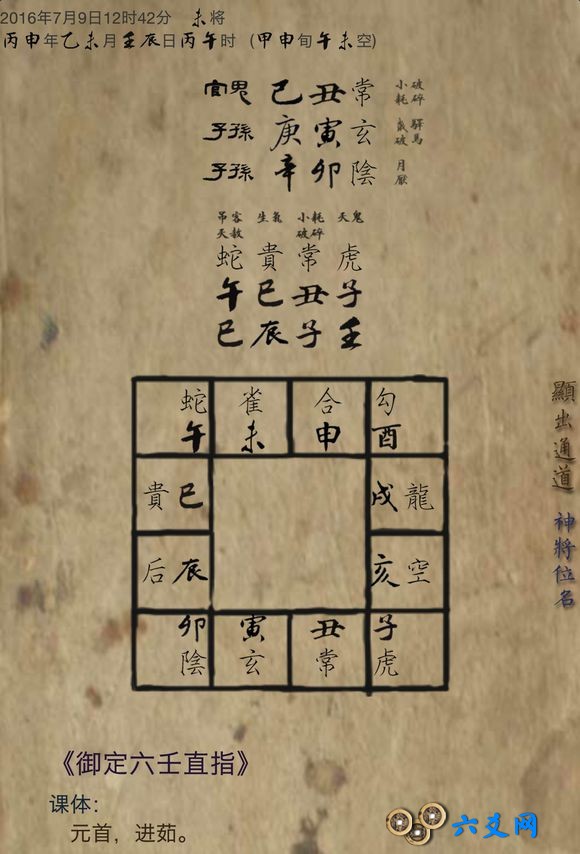 2016年7月9日12时42分 未将
丙申年乙未月壬辰日丙午时 (甲申旬午未空)
官鬼 己丑常 小耗 破碎
子孫 庚寅玄 歲破 驛馬
子孫 辛卯陰 月厭
吊客 生氣 小耗 天鬼
天赦 破碎
蛇 貴 常 虎
午 巳 丑 子
巳 辰 子 壬
蛇 雀 合 勾
午 未 申 酉
貴 巳 戌 龍
后 辰 亥 空
卯 寅 丑 子
陰 玄 常 虎
顯出通道 神將位名
《御定六壬直指》
课体：
元首，进茹。
六爻网